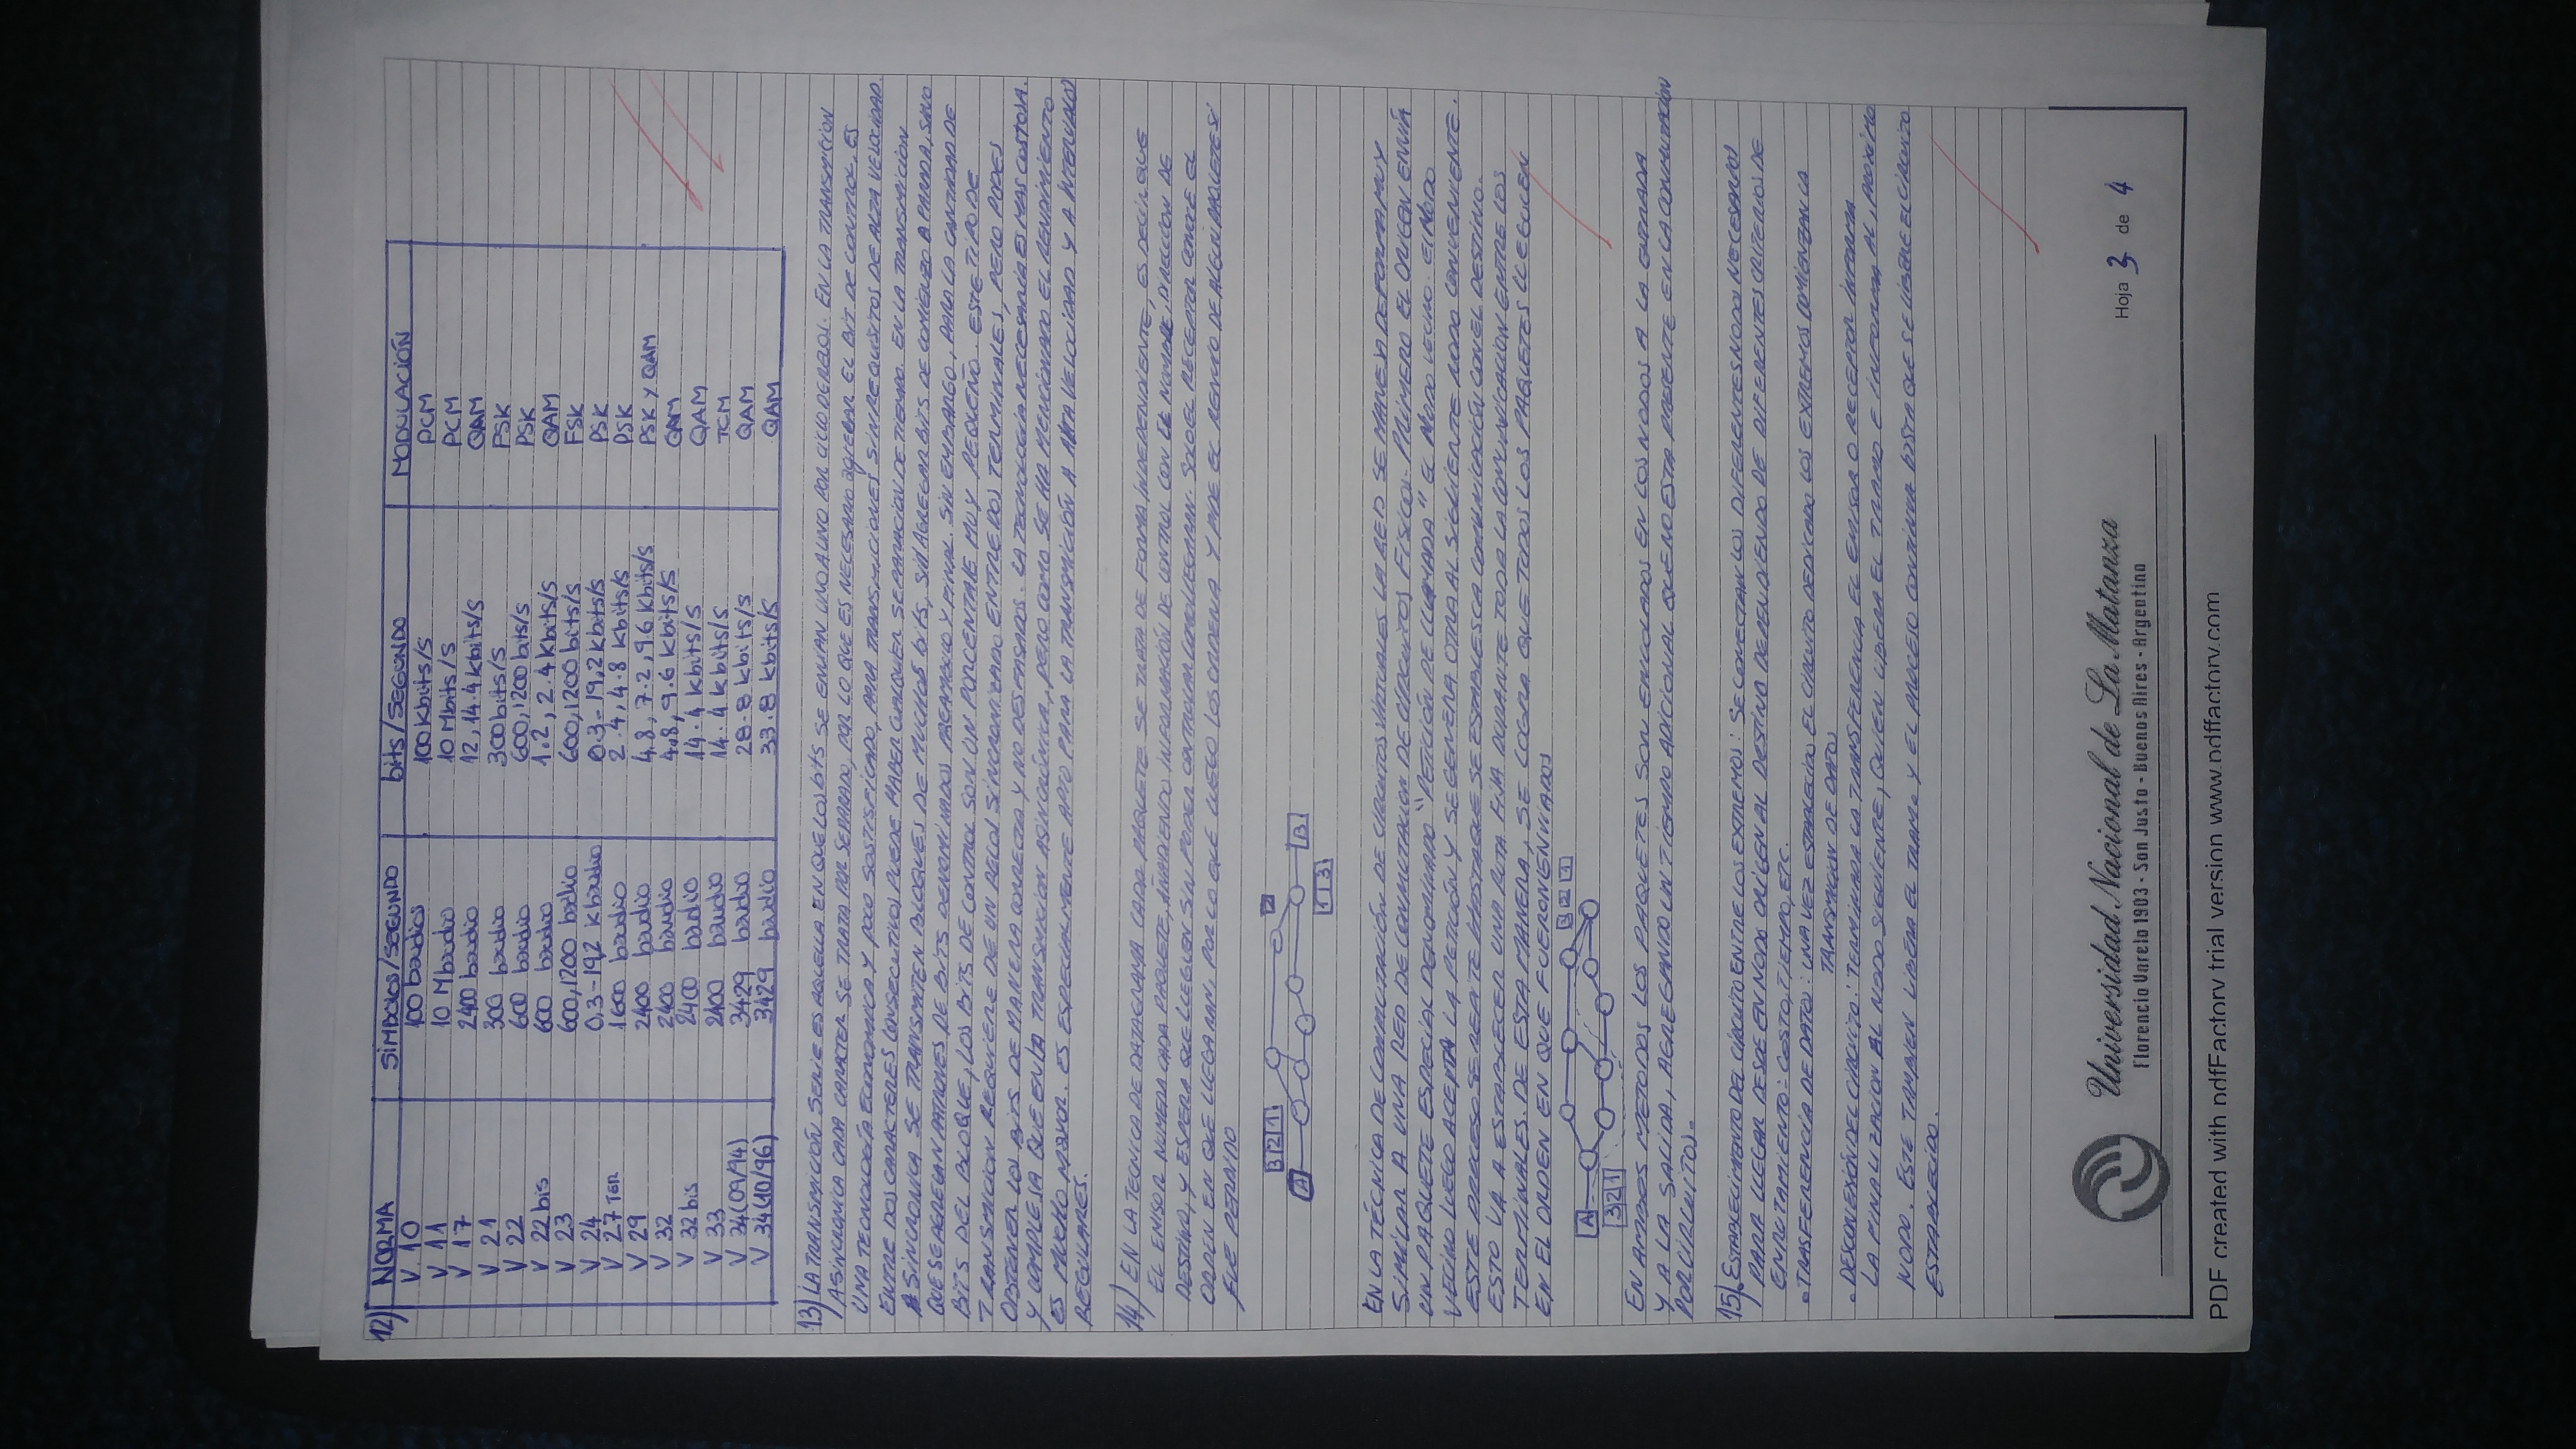 12) NORMA SÍMBOLOS/SEGUNDO bits/SEGUNDO MODULACIÓN
V. 10 100 baudios 100 Kbits/s PCM
V 11 10 Mbaudio 10 Mbits/s PCM
V 17 2400 baudio 12, 14.4 kbits/s QAM
V 21 300 baudio 300 bits/s FSK
V 22 600 baudio 600, 1200 bits/s PSK
V 22 bis 600 baudio 1.2, 2.4 Kbits/s QAM
V 23 600, 1200 badio 600, 1200 bits/s FSK
V 24 0,3-19,2 Kbaudio 0.3-19,2 kbits/s PSK
V 27 TER 1600 baudio 2.4, 4.8 kbits/s PSK
V 29 2400 baudio 4.8, 7.2, 9.6 Kbits/s PSK Y QAM
V 32 2400 baudio 4.8, 9.6 kbits/s QAM
V 32 bis 2400 badio 14.4 kbits/s QAM
V 33 2400 baudio 14.4 kbits/s TCM
V 34(09/94) 3429 baudio 28.8 kbits/s QAM
V 34(10/96) 3429 baudio 33.8 kbits/s QAM
13) LA TRANSMICIÓN SERIE ES AQUELLA EN QUE LOS bits SE ENVIAN UNO A UNO POR CICLO DE RELOJ. EN LA TRANSMICION
ASINCRONICA CADA CARACTER SE TRATA POR SEPARADO, POR LO QUE ES NECESARIO agregar EL BIT DE CONTROL. ES
UNA TECNOLOGÍA ECONOMICA Y POCO SOSTISFICADO, PARA TRANSMICIONES SIN REQUISITOS DE ALTA VELOCIDAD.
ENTRE DOS CARACTERES CONSECUTIVOS PUEDE HABER CUALQUIER SEPARACION DE TIEMPO. EN LA TRANSMICION
ASINCRONICA SE TRANSMITEN BLOQUES DE MUCHOS bits, SIN AGREGAR BITS DE COMIENZO O PARADA, SINO
QUE SE AGREGAN PATRONES DE BITS DENOMINADOS PREAMBULO Y FINAL. SIN EMBARGO, PARA LA CANTIDAD DE
BITS DEL BLOQUE, LOS BITS DE CONTROL SON UN PORCENTAJE MUY PEQUEÑO. ESTE TIPO DE
TRANSMICION REQUIERE DE UN RELOJ SINCRONIZADO ENTRE DOS TERMINALES, PERO PODES
OBTENER LOS BITS DE MANERA CORRECTA Y NO DESFASADOS. LA TECNOLOGÍA NECESARIA ES MAS COSTOSA.
Y COMPLEJA QUE EN LA TRANSMICION ASINCRÓNICA, PERO COMO SE HA MENCIONADO EL RENDIMIENTO
ES MUCHO MAYOR. ES ESPECIALMENTE APTO PARA LA TRANSMICIÓN A ALTA VELOCIDAD Y A INTERVALOS
REGULARES.
14) EN LA TECNICA DE DATAGRAMA CADA PAQUETE SE TRATA DE FORMA INDEPENDIENTE, ES DECIR QUE
EL EMISOR NUMERA CADA PAQUETE, AÑADIENDO INFORMACIÓN DE CONTROL CON EL NOMBRE, DIRECCION DE
DESTINO, Y ESPERA QUE LLEGUEN SIN PODER CONTROLAR COMO LLEGARAN. SOLO EL RECEPTOR CONOCE EL
ORDEN EN QUE LLEGARAN, POR LO QUE LUEGO LOS ORDENA Y PIDE EL RENVIO DE ALGUN PAQUETE SI
FUE PERDIDO
3 2 1 2
A B
1 3
EN LA TÉCNICA DE CONMUTACIÓN DE CIRCUITOS VIRTUALES LA RED SE MANEJA DE FORMA MUY
SIMILAR A UNA RED DE CONMUTACION DE CÍRCUITOS FISICOS. PRIMERO EL ORIGEN ENVÍA
UN PAQUETE ESPECIAL DENOMINADO "PETICIÓN DE LLAMADA" EL NODO VECINO. El NODO
VECINO LUEGO ACEPTA LA PETICIÓN Y SE GENERA OTRA AL SIGUIENTE NODO CONVENIENTE.
ESTE PROCESO SE REPITE HASTA QUE SE ESTABLESCA COMUNICACIÓN CON EL DESTINO.
ESTO VA A ESTABLECER UNA RUTA FIJA DURANTE TODA LA COMUNICACION ENTRE LOS
TERMINALES. DE ESTA MANERA, SE LOGRA QUE TODOS LOS PAQUETES LLEGUEN
EN EL ORDEN EN QUE FUERON ENVIADOS
3 2 1
A
3 2 1
EN AMBOS METODOS LOS PAQUETES SON ENCOLADOS EN LOS NODOS A LA ENTRADA
Y A LA SALIDA, AGREGANDO UN TIEMPO ADICIONAL QUE NO ESTA PRESENTE EN LA CONMUTACION
POR CIRCUITOS.
15). ESTABLECIMIENTO DEL CIRCUITO ENTRE LOS EXTREMOS: SE CONECTAN LOS DIFERENTES NODOS NECESARIOS
PARA LLEGAR DESDE EN NODO ORIGEN AL DESTINO DEPENDIENDO DE DIFERENTES CRITERIOS DE
ENRUTAMIENTO: COSTO, TIEMPO, ETC.
• TRASFERENCIA DE DATOS: UNA VEZ ESTABLECIDO EL CIRCUITO DEDICADO LOS EXTREMOS COMIENZAN LA
TRANSMICION DE DATOS
• DESCONEXIÓN DEL CIRCUITO: TERMINADA LA TRANSFERENCIA EL EMISOR O RECEPTOR INFORMA
LA FINALIZACION AL NODO SIGUIENTE, QUIEN LIBERA EL TRAMO E INFORMA AL, PROXIMO
NODO. ESTE TAMBIEN LIBERA EL TRAMO Y EL PROCESO CONTINUA HASTA QUE SE LIBERE EL CIRCUITO
ESTABLECIDO.
Universidad Nacional de La Matanza
Florencio Varela 1903 - San Justo - Buenos Aires - Argentina
Hoja 3 de 4
PDF created with pdfFactory trial version www.pdffactory.com